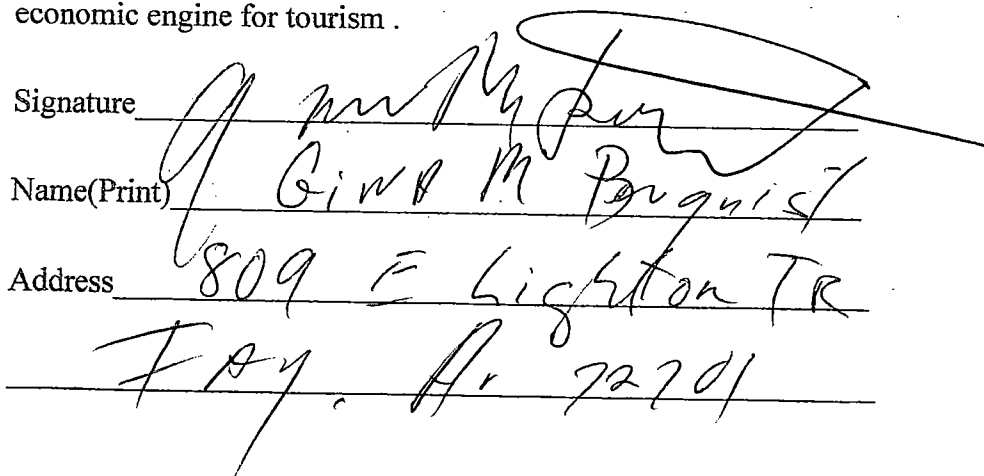 economic engine for tourism .
Signature
Name(Print) Gina M Bruquist
Address 809 E Lighton TR
FAY. Ar 72701